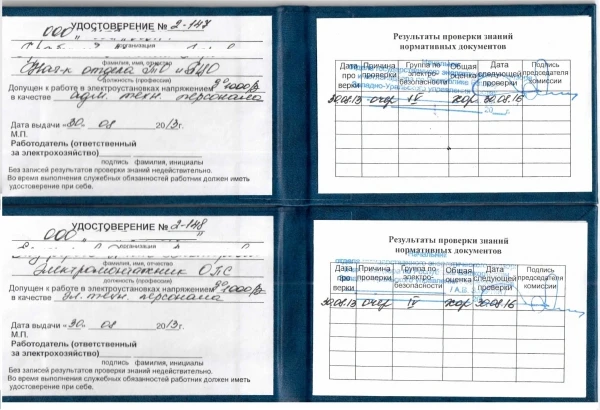 УДОСТОВЕРЕНИЕ № 2-147
ООО
организация
фамилия, имя, отчество
отдела
должность (профессия)
Допущен к работе в электроустановках напряжением до 1000 В
в качестве адм. техн. персонала
Дата выдачи «30» 08 2013г.
М.П.
Работодатель (ответственный
за электрохозяйство)
подпись фамилия, инициалы
Без записей результатов проверки знаний недействительно.
Во время выполнения служебных обязанностей работник должен иметь
удостоверение при себе.
Результаты проверки знаний
нормативных документов
Дата проверки Причина проверки Группа по электробезопасности Общая оценка Дата следующей проверки Подпись председателя комиссии
30.08.13 очер IV хор 30.08.16
УДОСТОВЕРЕНИЕ № 2-148
ООО
организация
фамилия, имя, отчество
Электромонтажник ОПС
должность (профессия)
Допущен к работе в электроустановках напряжением до 1000 В
в качестве эл. техн. персонала
Дата выдачи «30» 08 2013г.
М.П.
Работодатель (ответственный
за электрохозяйство)
подпись фамилия, инициалы
Без записей результатов проверки знаний недействительно.
Во время выполнения служебных обязанностей работник должен иметь
удостоверение при себе.
Результаты проверки знаний
нормативных документов
Дата проверки Причина проверки Группа по электробезопасности Общая оценка Дата следующей проверки Подпись председателя комиссии
30.08.13 очер IV хор 30.08.16